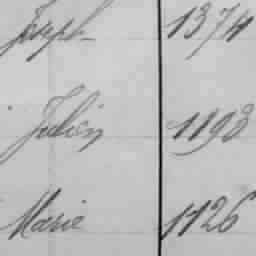 Joseph 1374
Julien 1198
Marie 1126